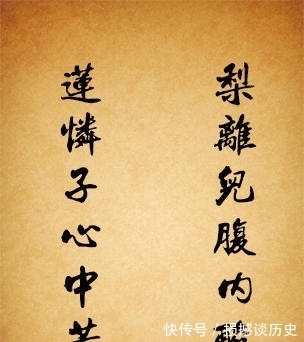 蓮憐子心中苦
梨離兒腹內
快传号 / 谈历史